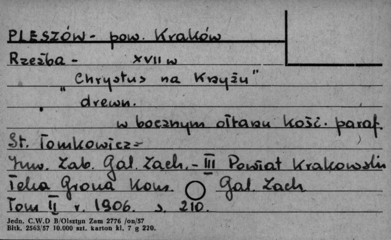 PLESZÓW - pow. Kraków
Rzeźba - XVII w
"Chrystus na Krzyżu"
drewn.
w bocznym ołtarzu kość. paraf.
St. Tomkowicz -
Inw. Zab. Gal. Zach. - III Powiat Krakowski
Teka Grona Kons. Gal. Zach
Tom II r. 1906. s. 210.
Jedn. C.W.D B/Olsztyn Zam 2776 /on/57
Bltk. 2563/57 10.000 szt. karton kl. 7 g 220.